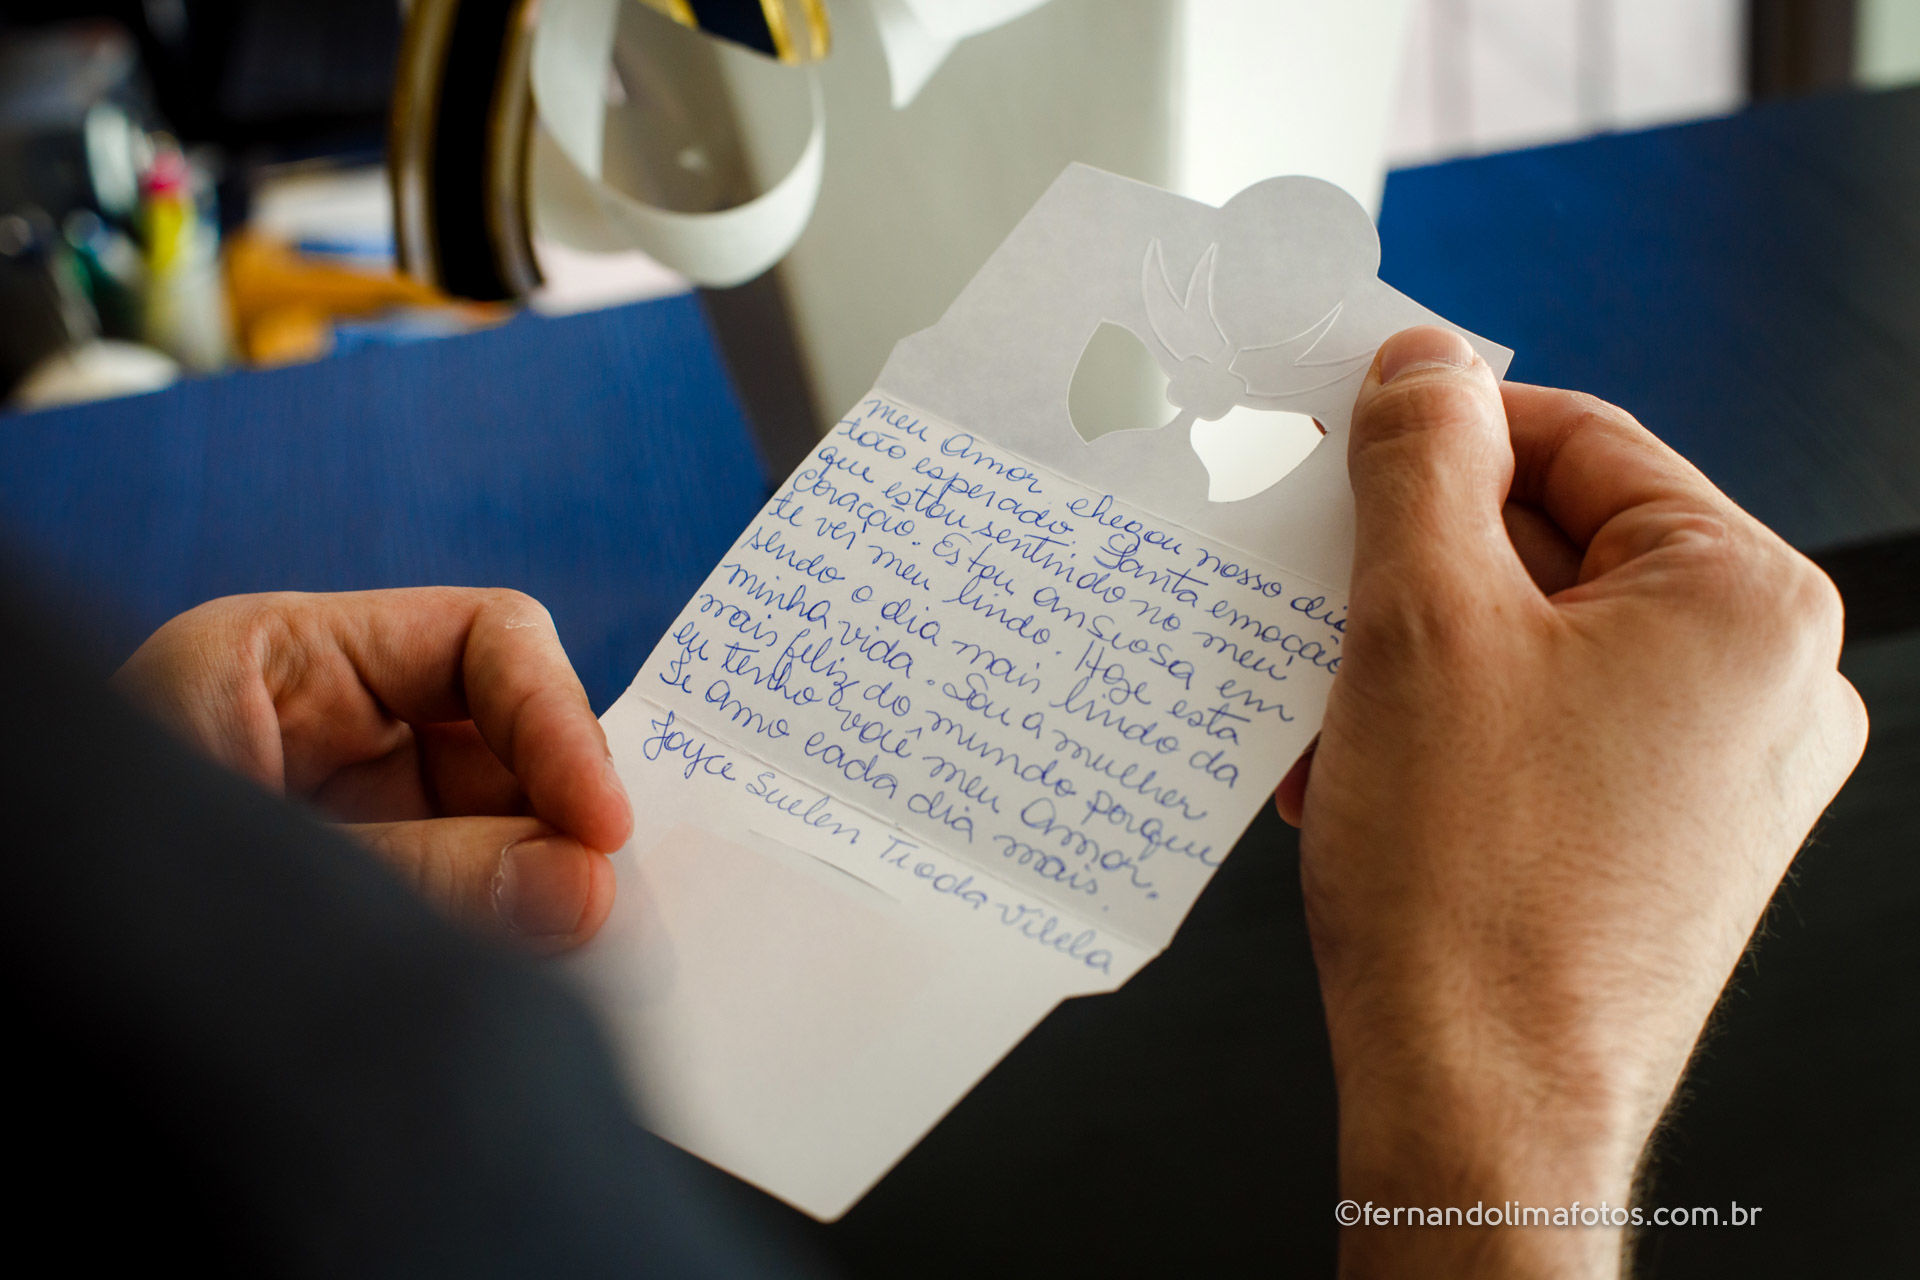 meu Amor, chegou nosso dia
tão esperado. Santa emoção
que estou sentindo no meu
Coração. Estou ansiosa em
te ver meu lindo. Hoje esta
sendo o dia mais lindo da
minha vida. Sou a mulher
mais feliz do mundo porque
eu tenho você meu Amor.
Te Amo cada dia mais.
Joyce Suelen Tioda Vilela
©fernandolimafotos.com.br